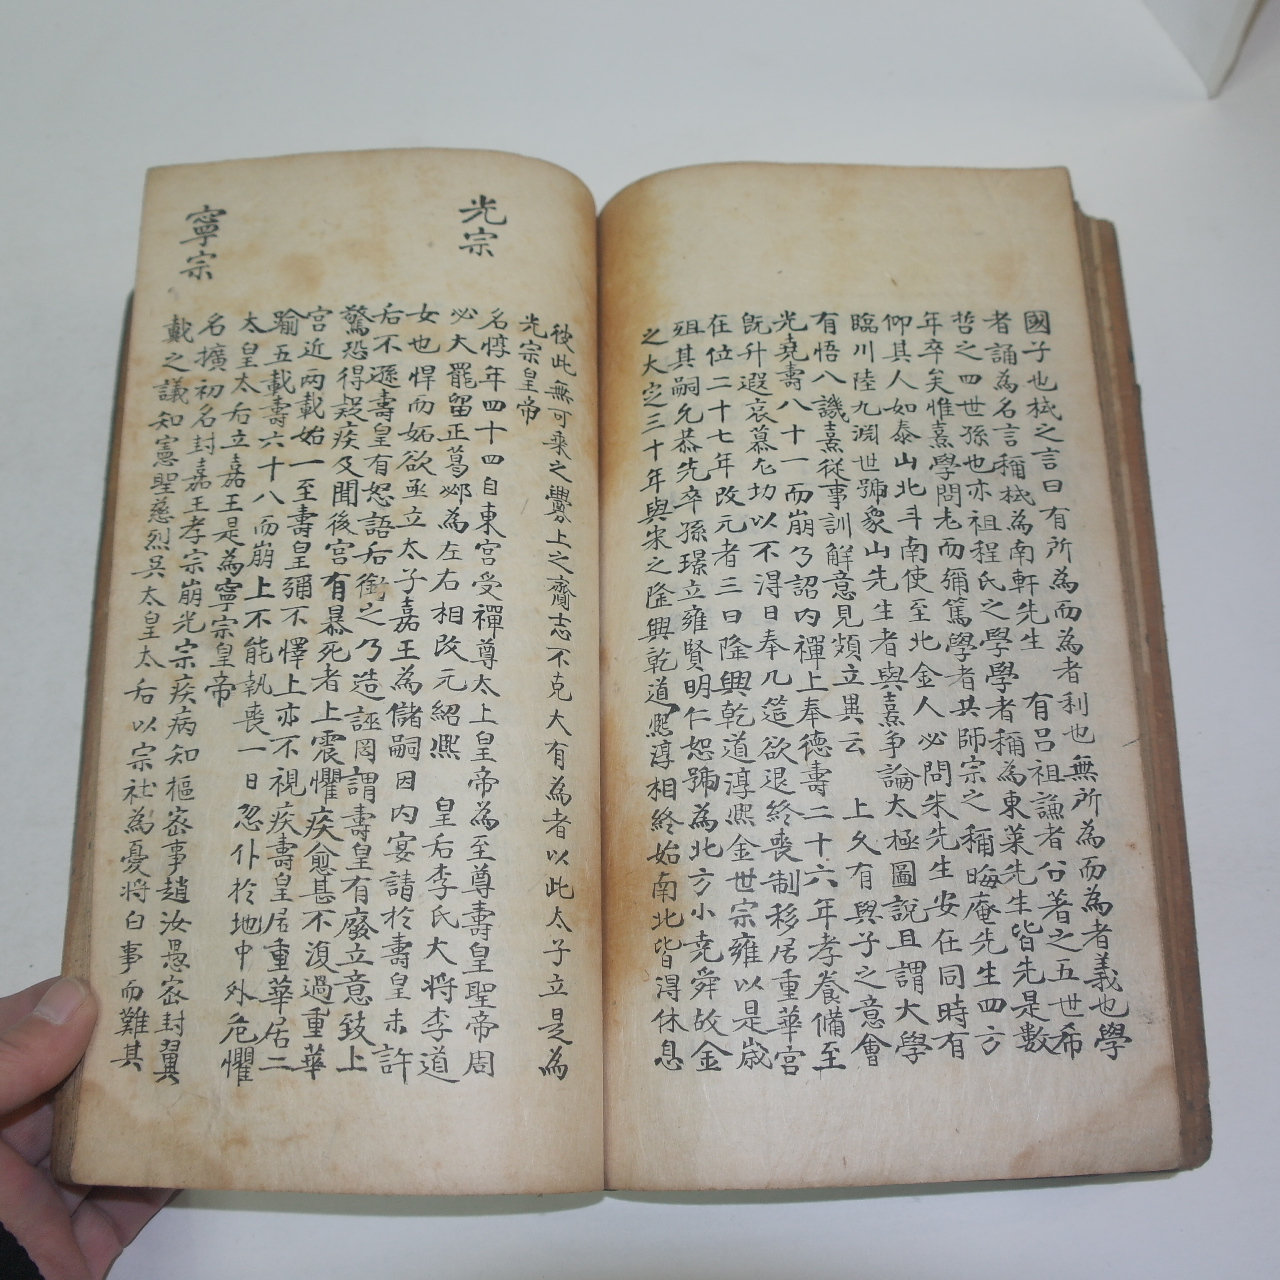 國子也栻之言曰有所為而為者利也無所為而為者義也學
者誦為名言稱栻為南軒先生 有呂祖謙者公著之五世希
哲之四世孫也亦祖程氏之學學者稱為東萊先生皆先是數
年卒矣惟熹學問老而彌篤學者其師宗之稱晦庵先生四方
仰其人如泰山北斗南使至北金人必問朱先生安在同時有
臨川陸九淵世號象山先生者與熹爭論太極圖說且謂大學
有悟八譏熹從事訓解意見頗立異云 上久有與子之意會
光堯壽八十一而崩乃詔內禪上奉德壽二十六年孝養備至
旣升遐哀慕尤切以不得日奉几筵欲退終喪制移居重華宮
在位二十七年改元者三曰隆興乾道淳熙金世宗雍以是歲
殂其嗣允恭先卒孫璟立雍賢明仁恕號為北方小堯舜故金
之大定三十年與宋之隆興乾道熙淳相終始南北皆淂休息
彼此無可乘之釁上之齎志不克大有為者以此太子立是為
光宗皇帝
光宗
名惇年四十四自東宮受禪尊太上皇帝為至尊壽皇聖帝周
必大罷留正葛邲為左右相改元紹熙 皇后李氏大將李道
女也悍而妬欲亟立太子嘉王為儲嗣因內宴請於壽皇未許
后不遜壽皇有恕語后銜之乃造誣罔謂壽皇有廢立意致上
驚恐得疑疾及聞後宮有暴死者上震懼疾愈甚不復過重華
宮近兩載始一至壽皇彌不懌上亦不視疾壽皇居重華居二
踰五載壽六十八而崩上不能執喪一日忽仆於地中外危懼
太皇太后立嘉王是為寧宗皇帝
寧宗
名擴初名封嘉王孝宗崩光宗疾病知樞密事趙汝愚密封翼
戴之議知憲聖慈烈吳太皇太后以宗社為憂將白事而難其